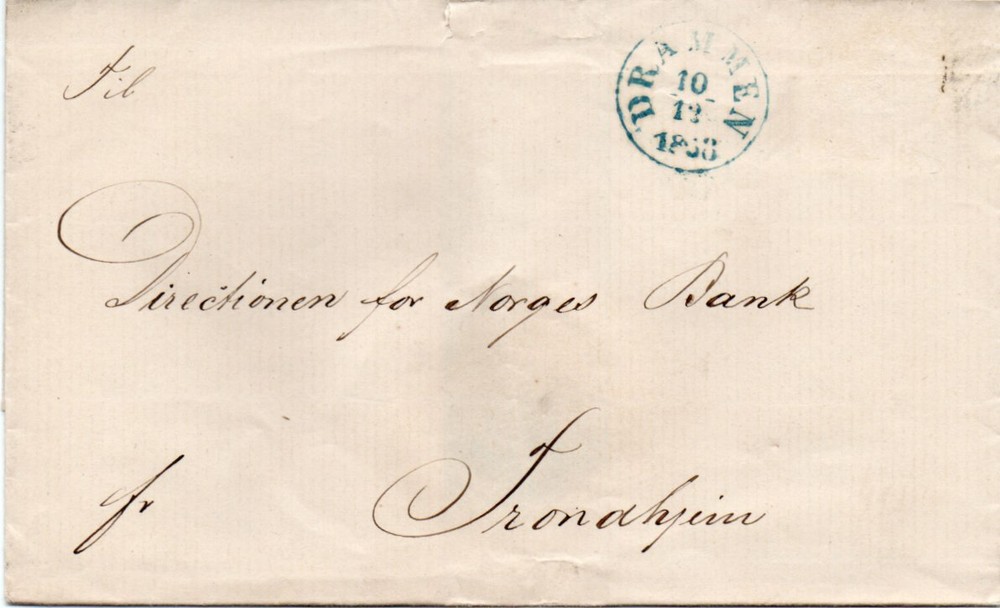 Til
DRAMMEN
10
12
Directionen for Norges Bank
fr Trondhjem